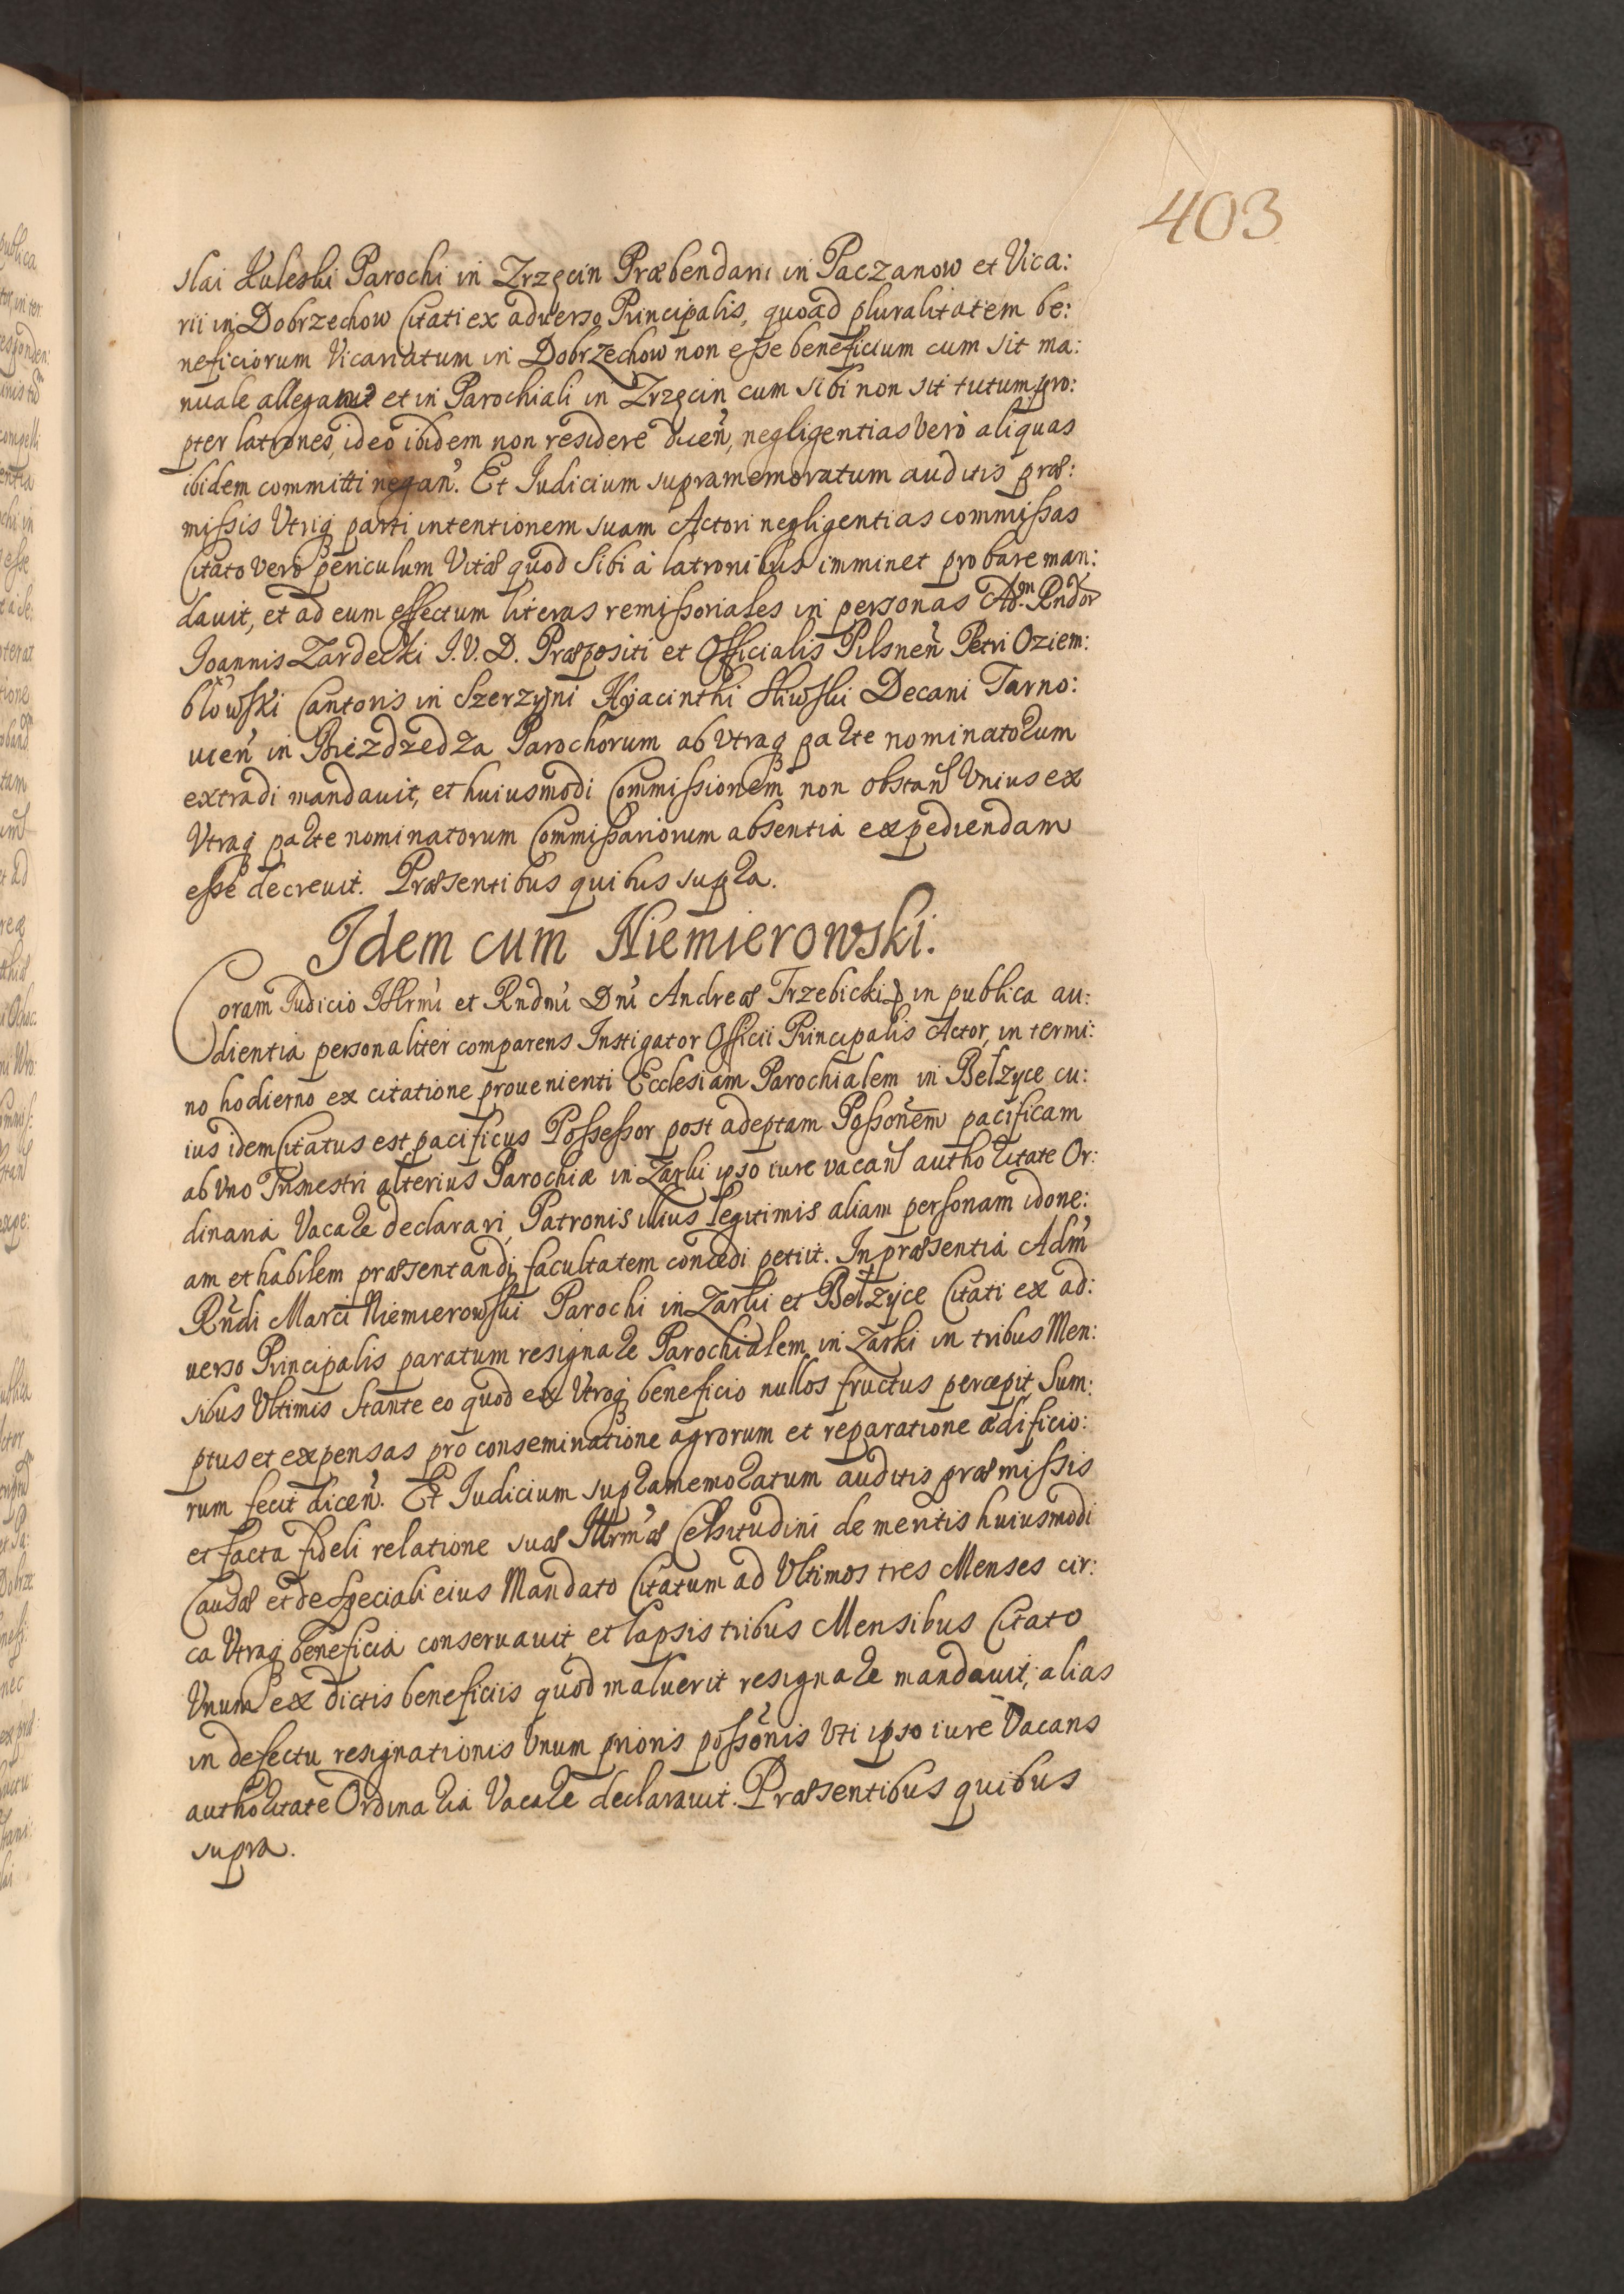 403
slai Kuleski Parochi in Zrzęcin Præbendarii in Paczanow et Vica:
rii in Dobrzechow Citati ex aduerso Principalis, quoad pluralitatem be:
neficiorum Vicariatum in Dobrzechow non esse beneficium cum sit ma:
nuale allegauit et in Parochiali in Zrzęcin cum sibi non sit tutum pro:
pter latrones, ideo ibidem non residere dicen̄, negligentias verò aliquas
ibidem committi negan̄. Et Iudicium supramemoratum auditis præ:
missis Vtriq parti intentionem suam Actori negligentias commissas
Citato vero periculum Vitæ quod sibi à latronibus imminet probare man:
dauit, et ad eum effectum literas remissoriales in personas Adm Rndor
Ioannis Zardecki I.V.D. Præpositi et Officialis Pilsnen̄ Petri Oziem:
błowski Cantoris in Szerzyni Hyacinthi Sliwski Decani Tarno:
uien̄ in Bieździedza Parochorum ab Vtraq parte nominatorum
extradi mandauit, et huiusmodi Commissionem non obstan̄ Vnius ex
Vtraq parte nominatorum Commissariorum absentia expediendam
esse decreuit. Præsentibus quibus supra.
Idem cum Niemierowski.
Coram Iudicio Illrmi et Rndmi Dni Andreæ Trzebicki in publica au:
dientia personaliter comparens Instigator Officii Principalis Actor, in termi:
no hodierno ex citatione prouenienti Ecclesiam Parochialem in Bełzyce cu:
ius idem Citatus est pacificus Possessor post adeptam Possonem pacificam
ab vno Trimestri alterius Parochiæ in Zarki ipso iure vacan̄ authoritate Or:
dinaria Vacare declarari, Patronis illius legitimis aliam personam idone:
am et habilem præsentandi facultatem concedi petiit. In præsentia Adm
Rndi Marci Niemierowski Parochi in Zarki et Bełzyce Citati ex ad:
uerso Principalis paratum resignare Parochialem in Zarki in tribus Men:
sibus Vltimis Stante eo quod ex Vtroq beneficio nullos fructus percepit, Sum:
ptus et expensas pro conseminatione agrorum et reparatione ædificio:
rum fecit dicen̄. Et Iudicium supramemoratum auditis præmissis
et facta fideli relatione suæ Illrmæ Celsitudini de meritis huiusmodi
Causæ et de speciali eius Mandato Citatum ad Vltimos tres Menses cir:
ca Vtraq beneficia conseruauit, et lapsis tribus Mensibus Citato
Vnum ex dictis beneficiis quod maluerit resignare mandauit, alias
in defectu resignationis Vnum prioris possonis Vti ipso iure Vacans
authoritate Ordinaria Vacare declarauit. Præsentibus quibus
supra.